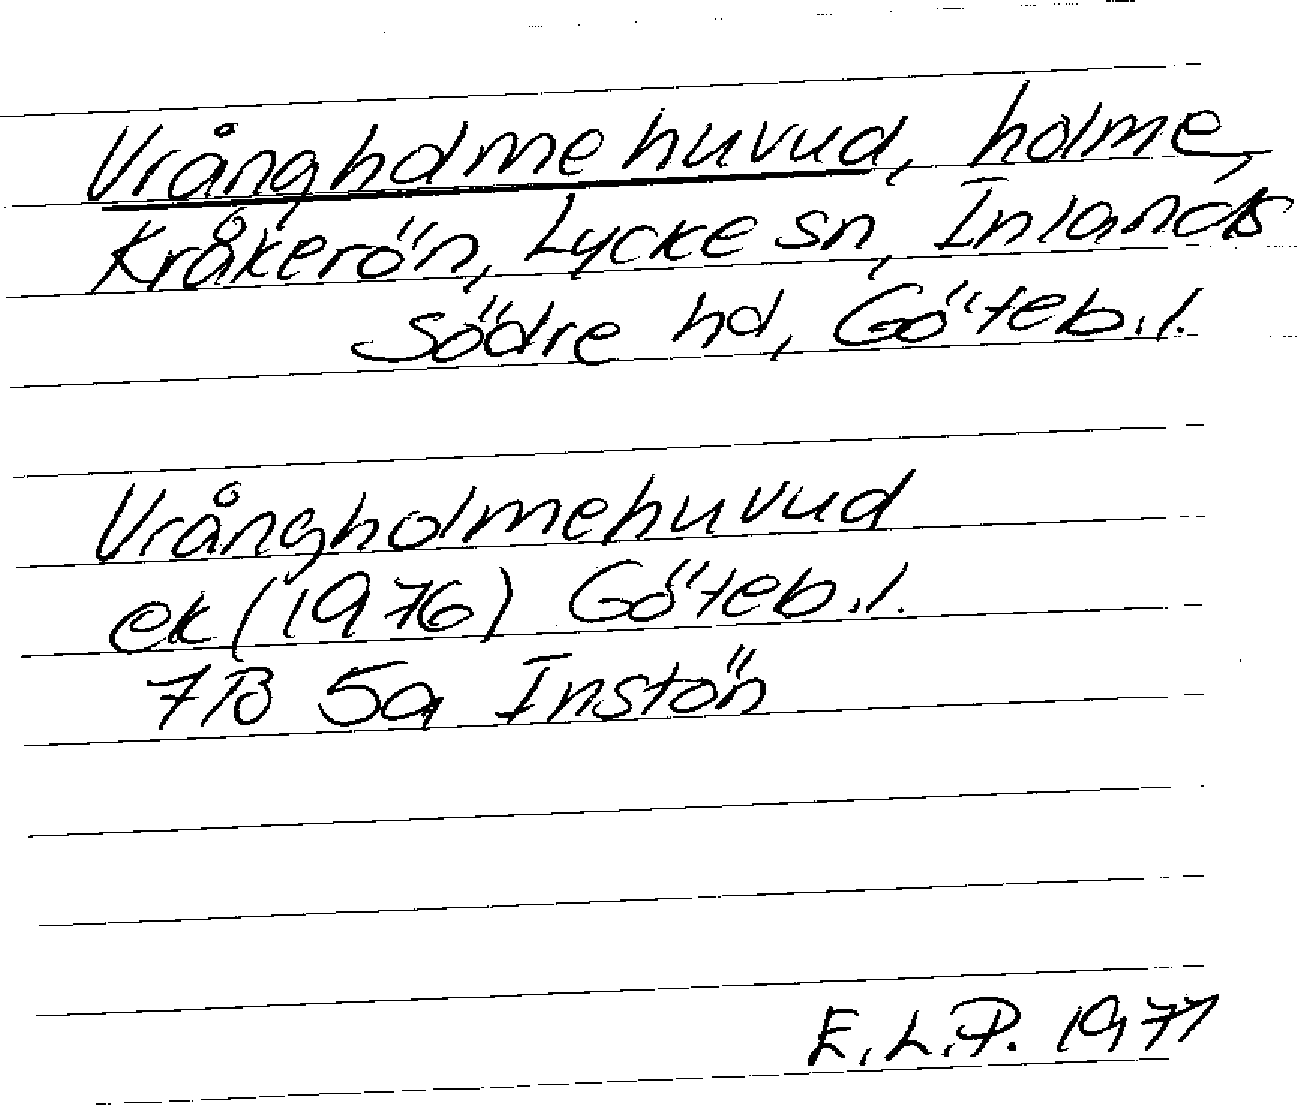 Vrångholmehuvud, holme,
Kråkerön, Lycke sn, Inlands
Södre hd, Göteb.l.
Vrångholmehuvud
ek (1976) Göteb.l.
7B 5a Instön
E.L.P. 1977